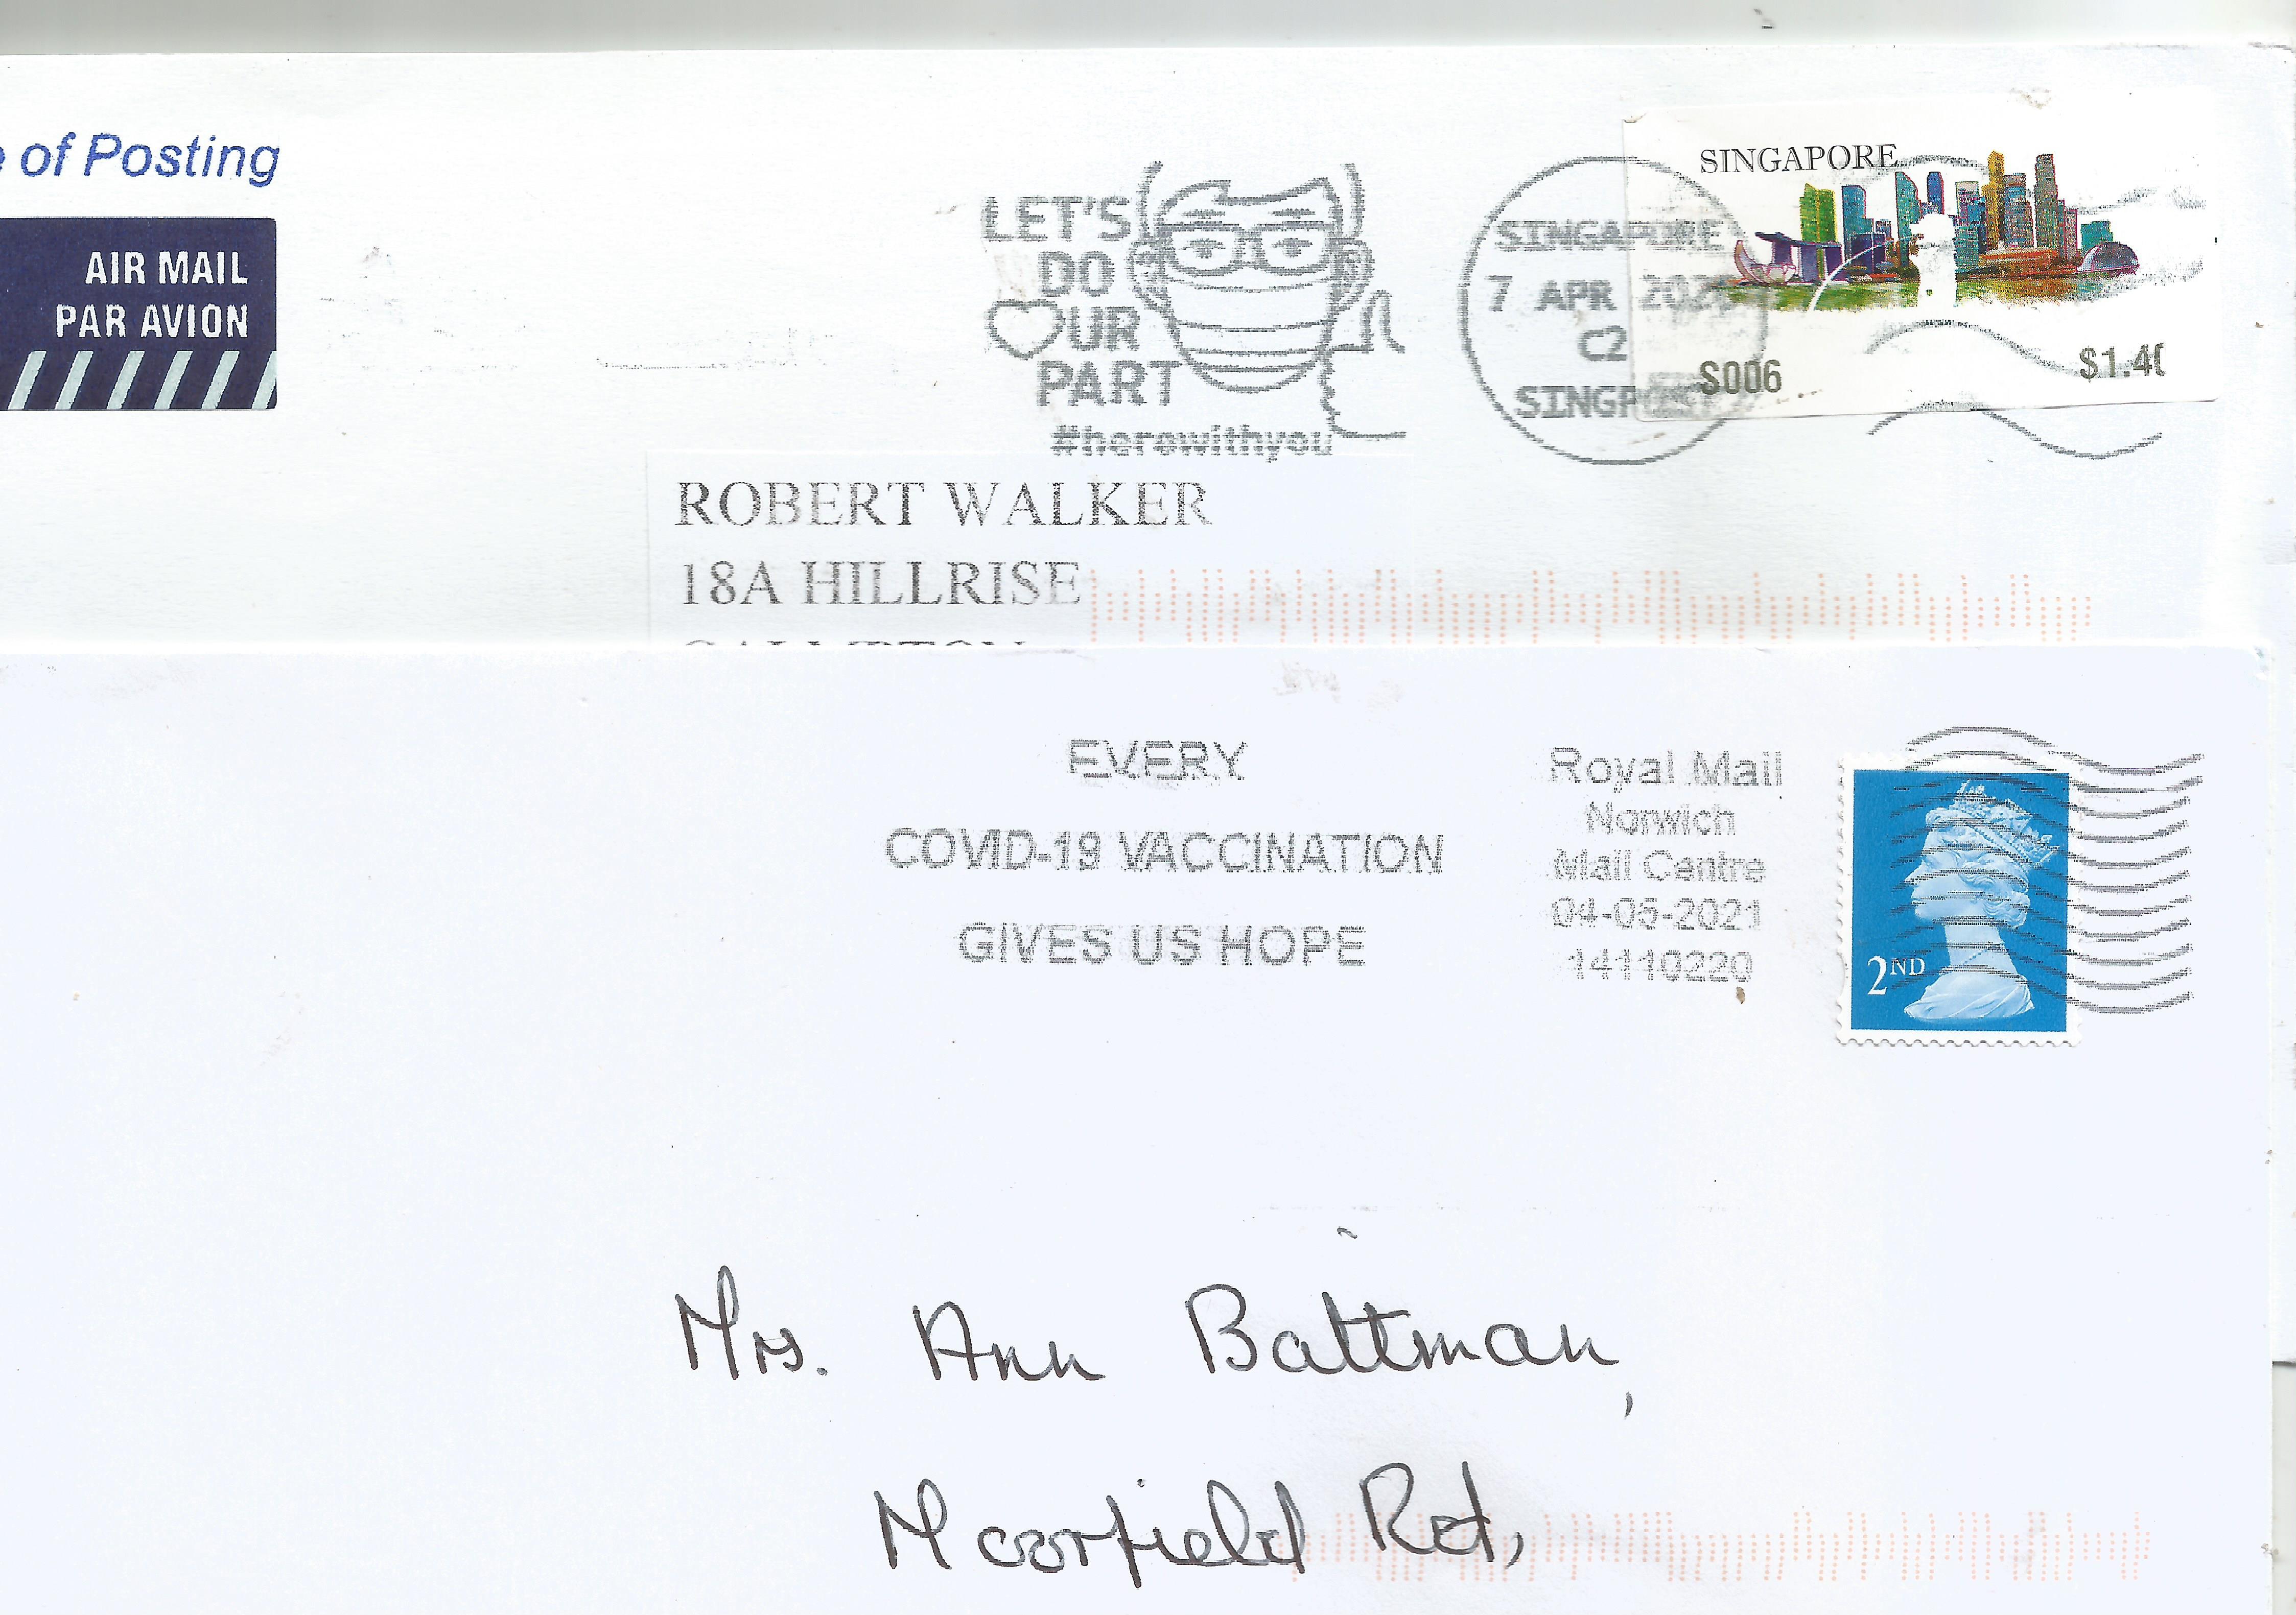 of Posting
AIR MAIL
PAR AVION
LET'S
DO
OUR
PART
#herewithyou
SINGAPORE
7 APR
C2
SINGAPORE
S006
$1.40
ROBERT WALKER
18A HILLRISE
EVERY
COVID-19 VACCINATION
GIVES US HOPE
Royal Mail
Norwich
Mail Centre
04-05-2021
14110220
2ND
Mrs. Ann Battman,
Moorfield Rd,